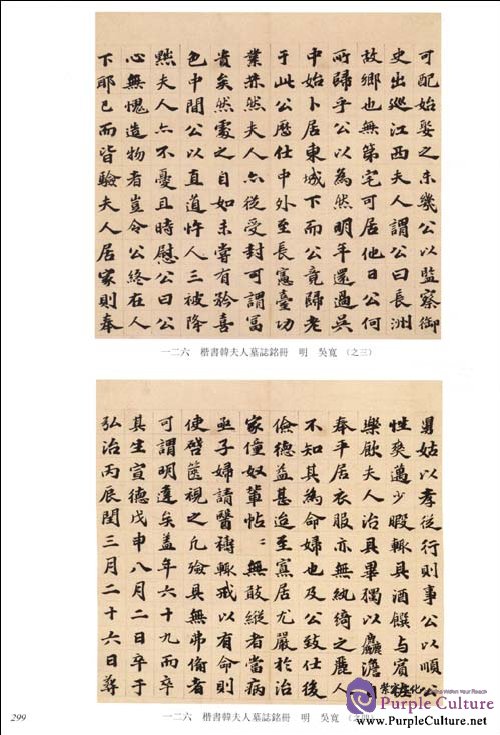 可配始娶之未幾公以監察御
史出巡江西夫人謂公曰長洲
故鄉也無第宅可居他日公何
所歸乎公以為然明年還過吳
中始卜居東城下而公竟歸老
于此公歷仕中外至長憲臺功
業赫然夫人亦從受封可謂富
貴矣然處之自如未嘗有矜喜
色中間公以直道忤人三被降
黜夫人亦不憂且時慰公曰公
心無愧造物者豈令公終在人
下耶已而皆驗夫人居家則奉
一二六 楷書韓夫人墓誌銘冊 明 吳寬 (之三)
舅姑以孝從行則事公以順公
性爽邁少暇輒具酒饌与賓佐
樂飲夫人治具畢獨以麤澹自
奉平居衣服亦無紈綺之麗人
不知其為命婦也及公致仕後
儉德益甚迨至寡居尤嚴於治
家僮奴輩帖〻無敢縱者當病
亟子婦請醫禱輒戒以有命則
使啓篋視之凡殮具無弗備者
可謂明達矣盖年六十九而卒
其生宣德戊申八月二日卒于
弘治丙辰閏三月二十六日葬
一二六 楷書韓夫人墓誌銘冊 明 吳寬
299
紫
化
Purple Culture
www.PurpleCulture.net